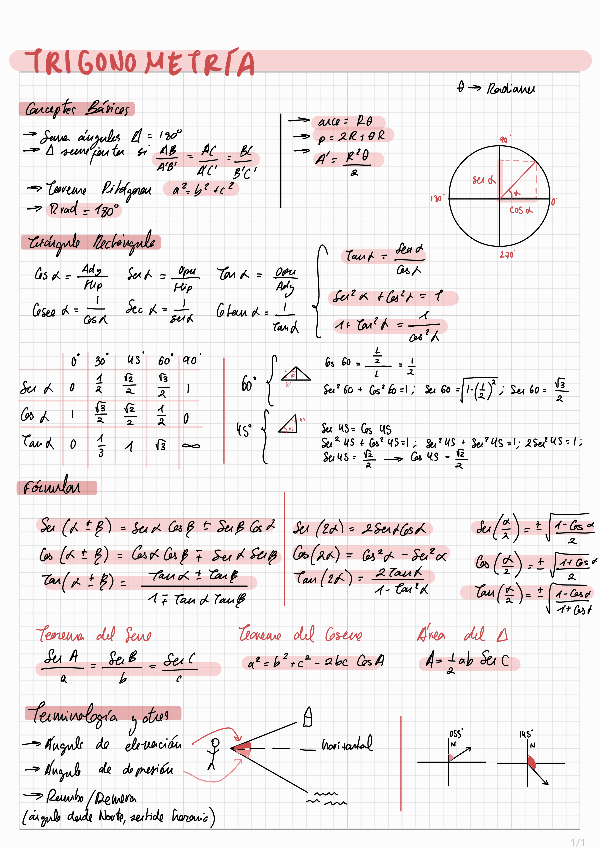 TRIGONOMETRÍA
θ → Radianes
Conceptos Básicos
→ Suma ángulos Δ = 180°
→ Δ semejantes si AB/A'B' = AC/A'C' = BC/B'C'
→ Teorema Pitágoras a² = b² + c²
→ π rad = 180°
→ arco = Rθ
→ p = 2R + θR
→ A' = R²θ/2
90°
180°
0°
270°
sen α
α
cos α
Triángulo Rectángulo
Cos α = Ady/Hip
Sen α = Opu/Hip
Tan α = Opu/Ady
Cosec α = 1/Cos α
Sec α = 1/sen α
Cotan α = 1/Tan α
Tan α = Sen α/Cos α
Sen² α + Cos² α = 1
1 + Tan² α = 1/cos² α
0° 30° 45° 60° 90°
Sen α 0 1/2 √2/2 √3/2 1
Cos α 1 √3/2 √2/2 1/2 0
Tan α 0 1/3 1 √3 ∞
60°
Cos 60 = (L/2)/L = 1/2
Sen² 60 + Cos² 60 = 1; Sen 60 = √(1-(1/2)²); Sen 60 = √3/2
45°
Sen 45 = Cos 45
Sen² 45 + Cos² 45 = 1; Sen² 45 + Sen² 45 = 1; 2Sen² 45 = 1;
Sen 45 = √2/2 → Cos 45 = √2/2
Fórmulas
Sen (α ± β) = Sen α Cos β ± Sen β Cos α
Cos (α ± β) = Cos α Cos β ∓ Sen α Sen β
Tan (α ± β) = (Tan α ± Tan β)/(1 ∓ Tan α Tan β)
Sen (2α) = 2 Sen α Cos α
Cos (2α) = Cos² α - Sen² α
Tan (2α) = 2 Tan α/(1 - Tan² α)
Sen (α/2) = ± √((1 - Cos α)/2)
Cos (α/2) = ± √((1 + Cos α)/2)
Tan (α/2) = ± √((1 - Cos α)/(1 + Cos α))
Teorema del Seno
Sen A/a = Sen B/b = Sen C/c
Teorema del Coseno
a² = b² + c² - 2bc Cos A
Área del Δ
A = 1/2 ab Sen C
Terminología y otros
→ Ángulo de elevación
→ Ángulo de depresión
→ Rumbo/Demora
(ángulo desde Norte, sentido horario)
horizontal
055°
N
145°
N
1/1